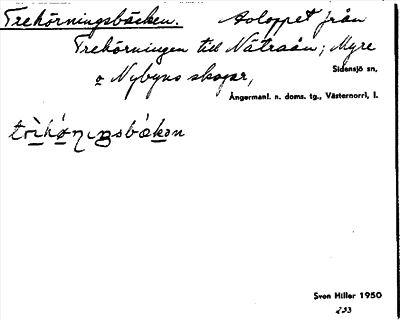 Trehörningsbäcken. Avloppet från
Trehörningen till Nätraån; Myre
o Nybyns skogar,
Sidensjö sn,
Ångermanl. n. doms. tg., Västernorrl, l.
Sven Hiller 1950
233